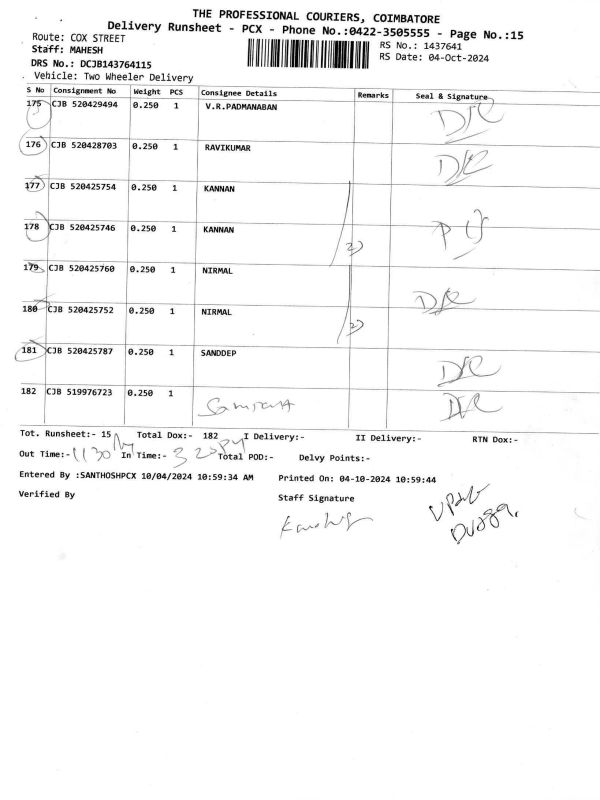 THE PROFESSIONAL COURIERS, COIMBATORE
Delivery Runsheet - PCX - Phone No.:0422-3505555 - Page No.:15
Route: COX STREET RS No.: 1437641
Staff: MAHESH RS Date: 04-Oct-2024
DRS No.: DCJB143764115
Vehicle: Two Wheeler Delivery
S No Consignment No Weight PCS Consignee Details Remarks Seal & Signature
175 CJB 520429494 0.250 1 V.R.PADMANABAN
176 CJB 520428703 0.250 1 RAVIKUMAR
177 CJB 520425754 0.250 1 KANNAN
178 CJB 520425746 0.250 1 KANNAN
179 CJB 520425760 0.250 1 NIRMAL
180 CJB 520425752 0.250 1 NIRMAL
181 CJB 520425787 0.250 1 SANDDEP
182 CJB 519976723 0.250 1
Tot. Runsheet:- 15 Total Dox:- 182 I Delivery:- II Delivery:- RTN Dox:-
Out Time:- 1130 In Time:- Total POD:- Delvy Points:-
Entered By :SANTHOSHPCX 10/04/2024 10:59:34 AM Printed On: 04-10-2024 10:59:44
Verified By Staff Signature